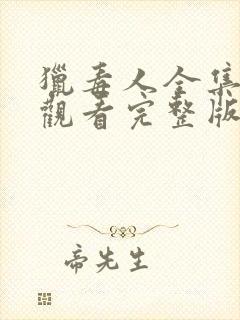 獵毒人全集
觀看完整版
帝先生